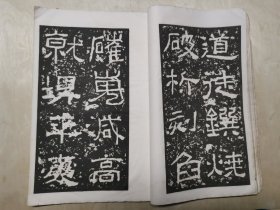 道徒鐉燒
破析刻臽
磪嵬减高
就埤平夷